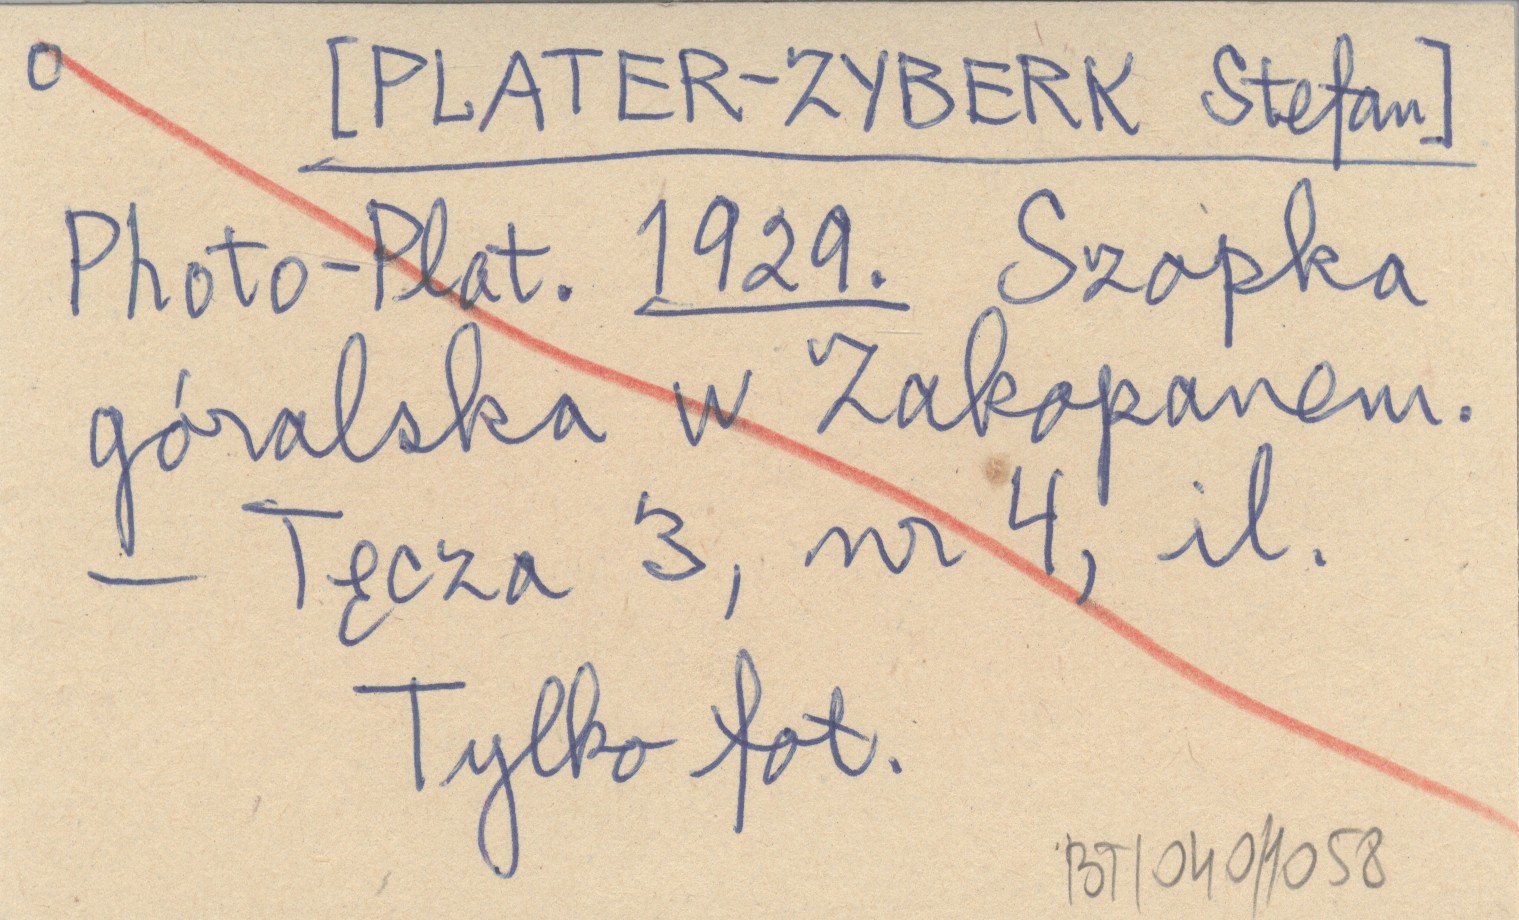 o [PLATER-ZYBERK Stefan]
Photo-Plat. 1929. Szopka
góralska w Zakopanem.
— Tęcza 3, nr 4, il.
Tylko fot.
BT/040/1058